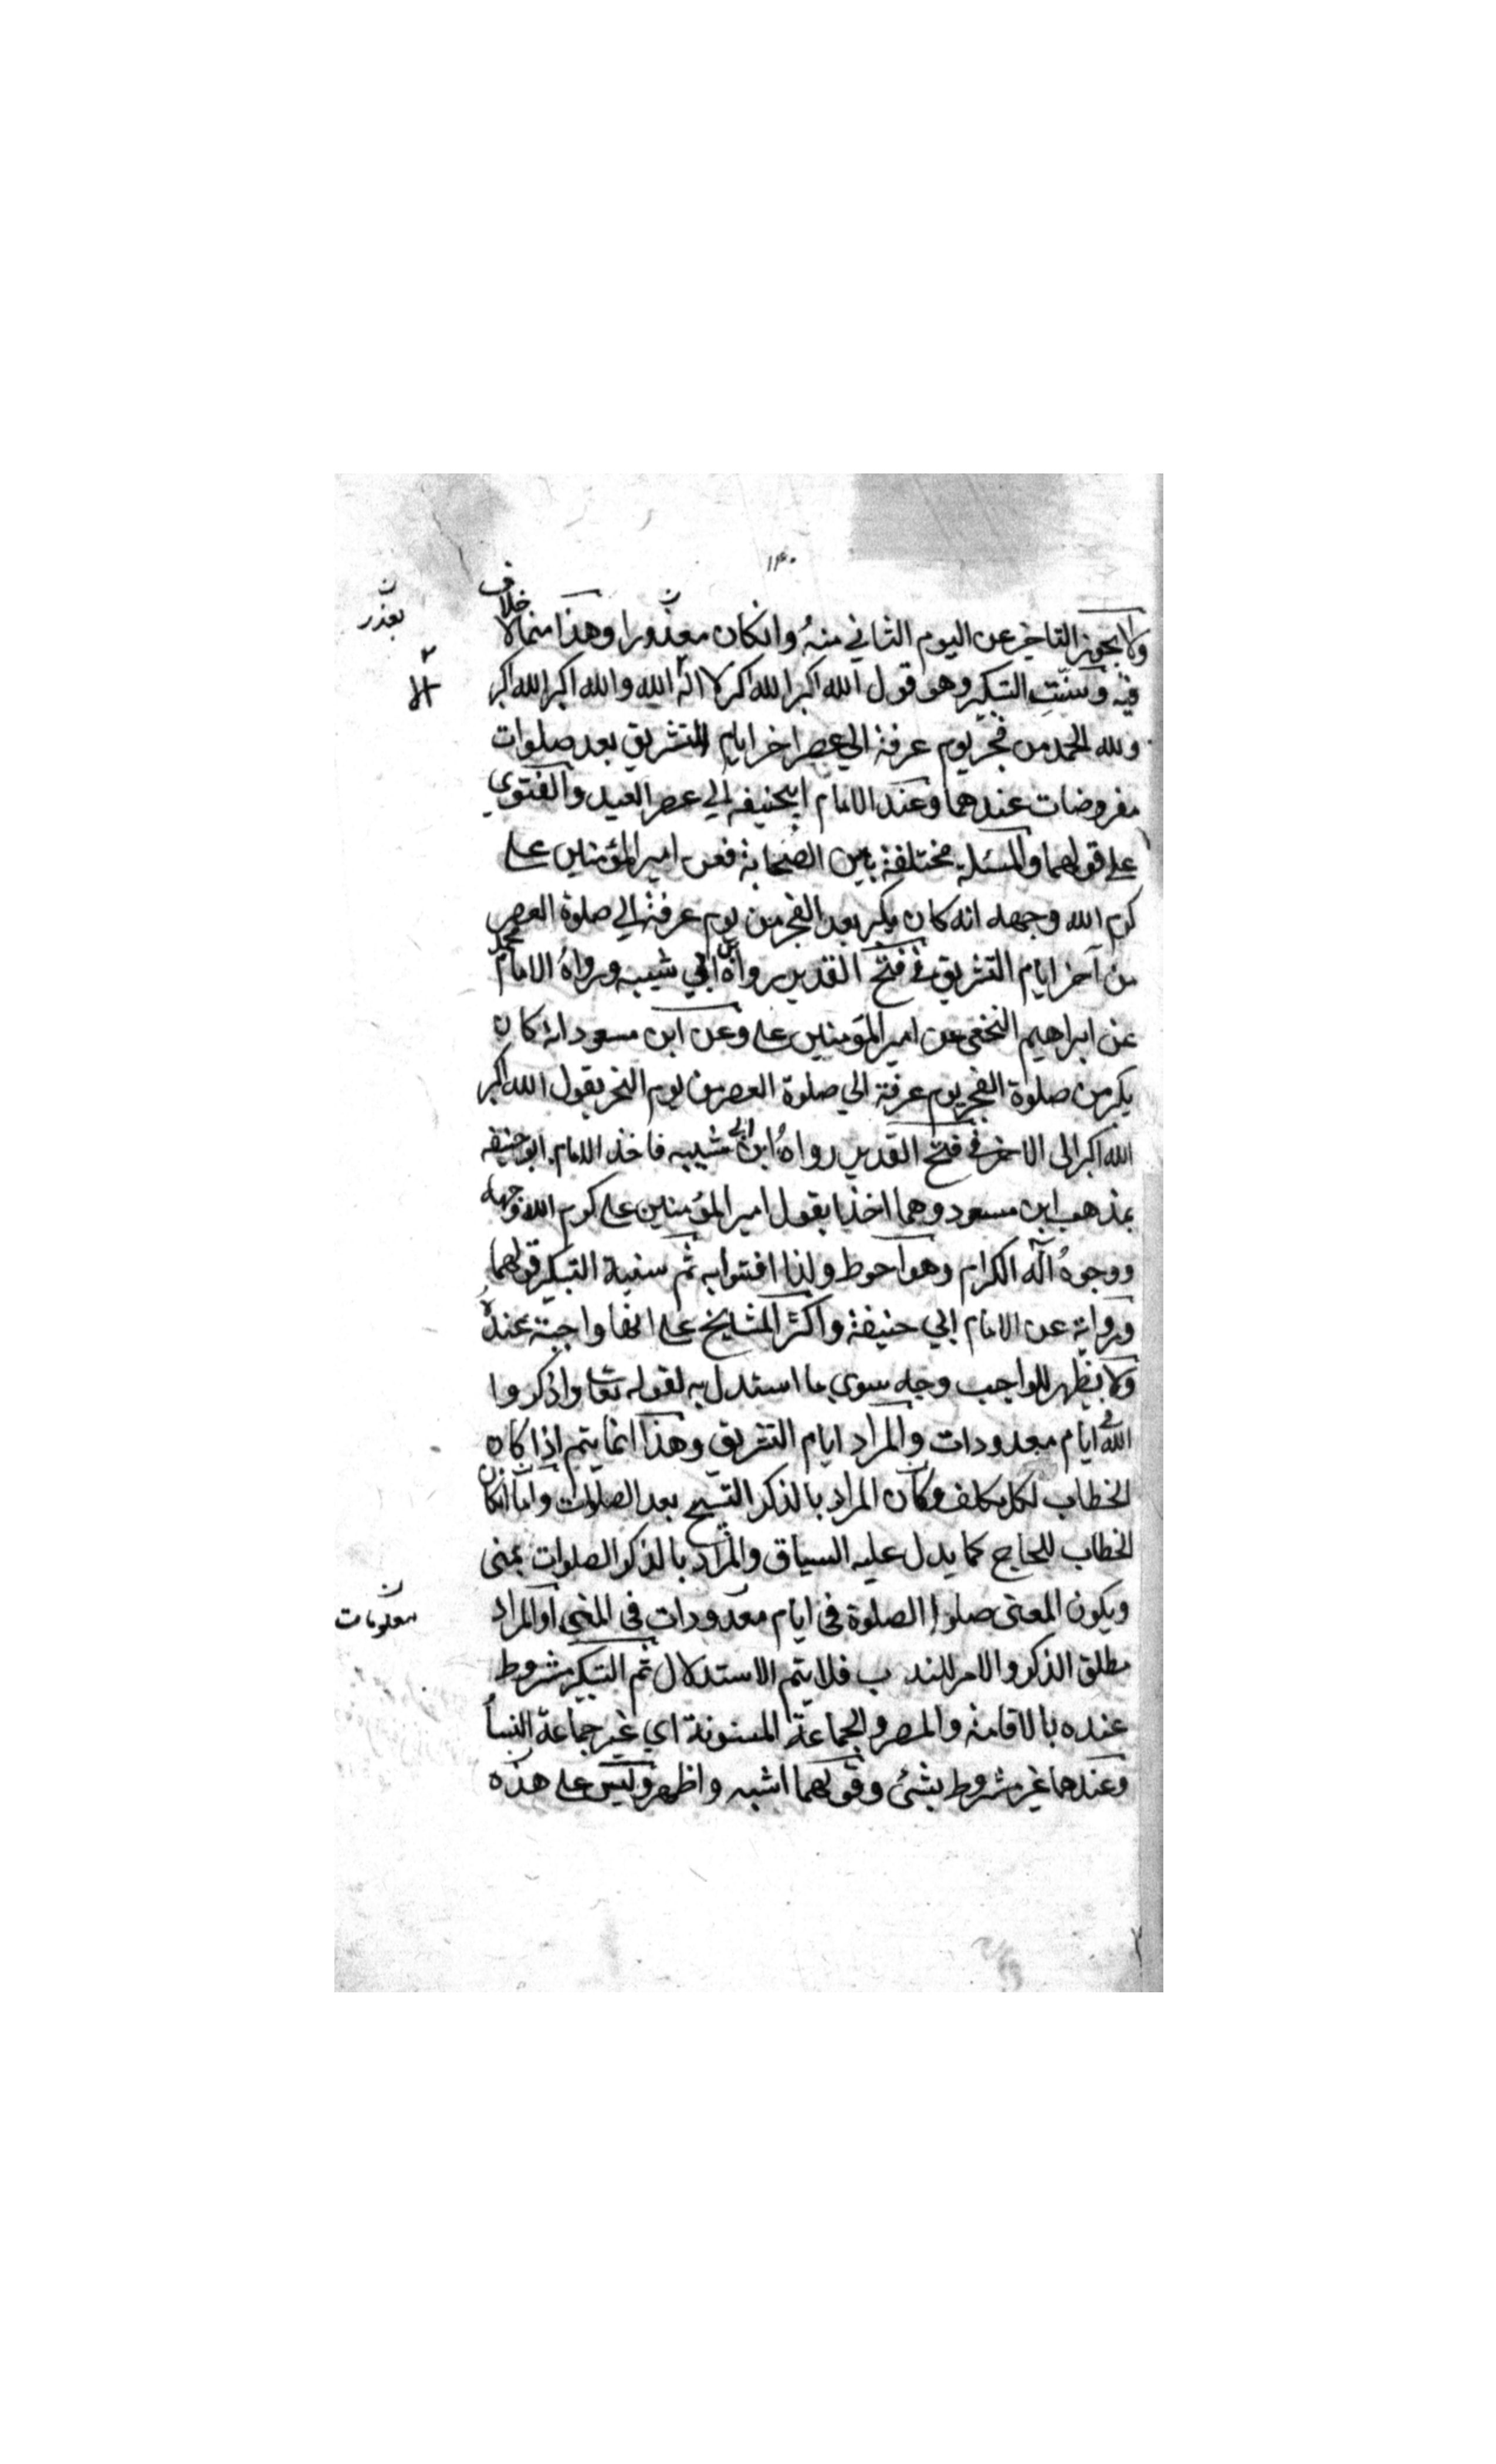 ١٤٠
ولا يجوز التاخير عن اليوم الثاني منه وانكان معذورا وهذا مما لا خلاف
بعذر
فيه وسنت التكبير وهو قول الله اكبر الله اكبر لا اله الله والله اكبر الله اكبر
الا
ولله الحمد من فجر يوم عرفة الي عصر اخر ايام التشريق بعد صلوات
مفروضات عندهما وعند الامام ابيحنيفه الي عصر العيد والفتوي
علي قولهما والمسئلة مختلفة بين الصحابة فعن امير المؤمنين علي
كرم الله وجهه انه كان يكبر بعد الفجر من يوم عرفة الي صلوة العصر
من آخر ايام التشريق في فتح القدير رواه ابن ابي شيبه ورواه الامام محمد
عن ابراهيم النخعي عن امير المؤمنين علي وعن ابن مسعود انه كان
يكبر من صلوة الفجر يوم عرفة الي صلوة العصر من يوم النحر يقول الله اكبر
الله اكبر الى الاخر في فتح القدير رواه ابن ابي شيبه فاخذ الامام ابو حنيفه
بمذهب ابن مسعود وهما اخذا بقول امير المؤمنين علي كرم الله وجهه
ووجوه آله الكرام وهو احوط ولذا افتوا به ثم سنية التكبير قولهما
ورواية عن الامام ابي حنيفة واكثر المشايخ علي انها واجبة عنده
ولا يظهر للواجب وجه سوي ما استدل به لقوله تعا واذكروا
الله في ايام معدودات والمراد ايام التشريق وهذا انما يتم اذا كان
الخطاب لكل مكلف وكان المراد بالذكر التسبيح بعد الصلوات واما انكان
الخطاب للحاج كما يدل عليه السياق والمراد بالذكر الصلوات بمنى
ويكون المعنى صلوا الصلوة في ايام معدودات في المنى او المراد
معلومات
مطلق الذكر والامر للندب فلا يتم الاستدلال ثم التكبير مشروط
عنده بالاقامة والمصر والجماعة المسنونة اي غير جماعة النسأ
وعندهما غير مشروط بشئ وقولهما اشبه واظهر وليس علي هذه